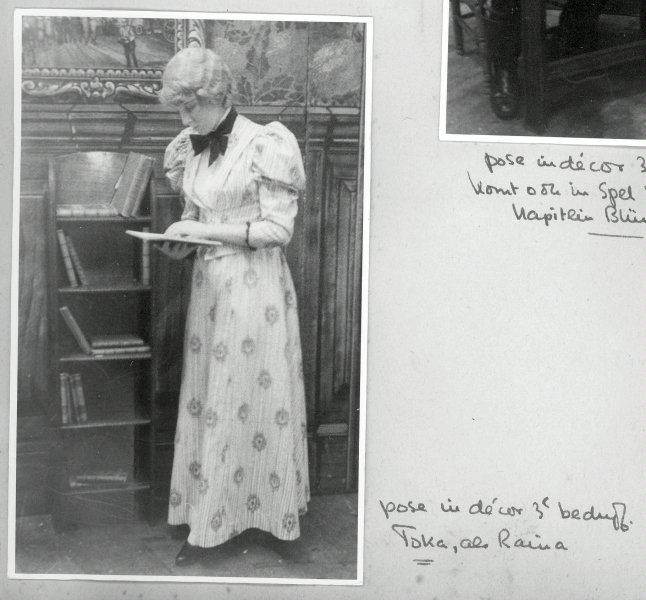 pose in décor 3
komt ook in Spel
Kapitein Blün
pose in décor 3e bedrijf.
Toka, als Raina